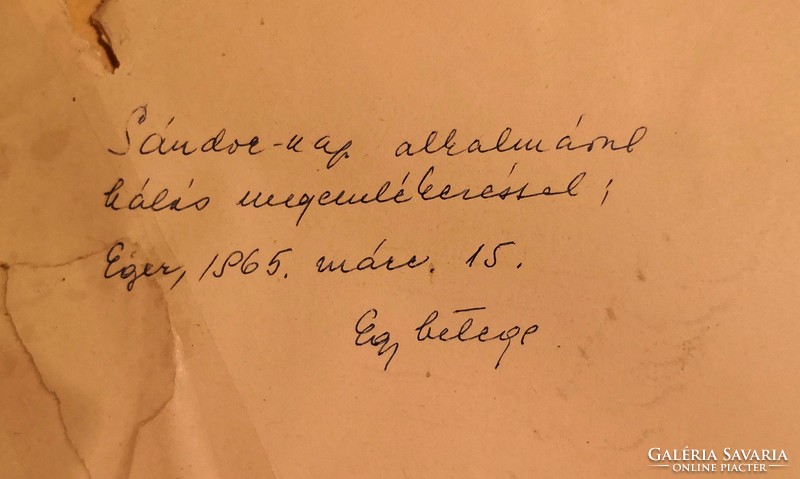 Sándor-nap alkalmával
hálás megemlékezéssel;
Eger, 1965. márc. 15.
Egy betege.
GALÉRIA SAVARIA
ONLINE PIACTÉR